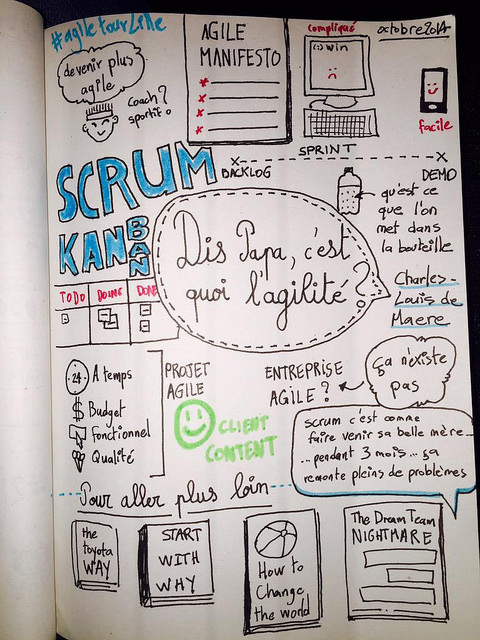 #agiletourLille
devenir plus
agile
coach?
sportif?
AGILE
MANIFESTO
compliqué
win
octobre 2014
facile
SCRUM
BACKLOG
SPRINT
DEMO
KANBAN
qu'est ce
que l'on
met dans
la bouteille
Dis Papa, c'est
quoi l'agilité?
Charles-
Louis de
Maere
TODO
DOING
DONE
24
A temps
$ Budget
Fonctionnel
Qualité
PROJET
AGILE
CLIENT
CONTENT
ENTREPRISE
AGILE?
ça n'existe
pas
scrum c'est comme
faire venir sa belle mère...
...pendant 3 mois... ça
remonte pleins de problèmes
Pour aller plus loin
the
toyota
WAY
START
WITH
WHY
How to
Change
the world
The Dream Team
NIGHTMARE